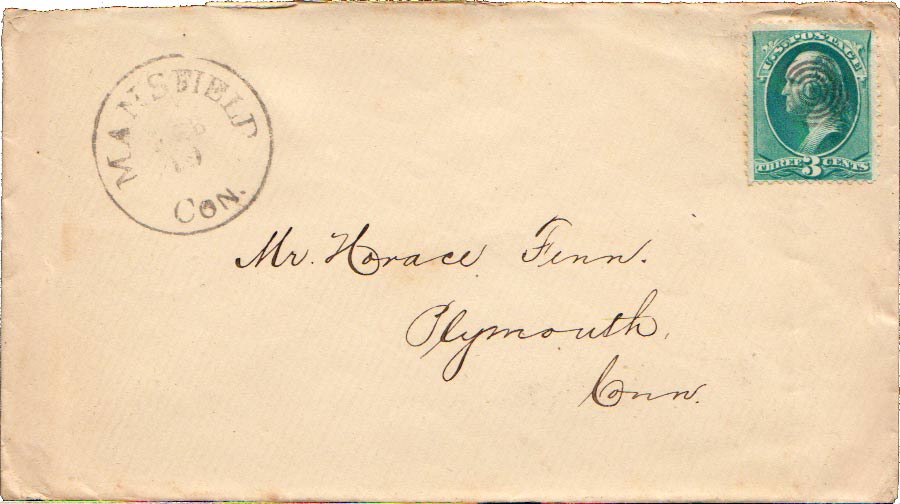 MANSFIELD
CON.
U.S. POSTAGE
THREE 3 CENTS
Mr. Horace Fenn.
Plymouth,
Conn.